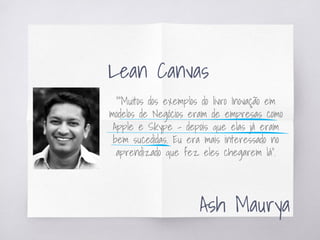 Lean Canvas
""Muitos dos exemplos do livro Inovação em
modelos de Negócios eram de empresas como
Apple e Skype - depois que elas já eram
bem sucedidas. Eu era mais interessado no
aprendizado que fez eles chegarem lá".
Ash Maurya